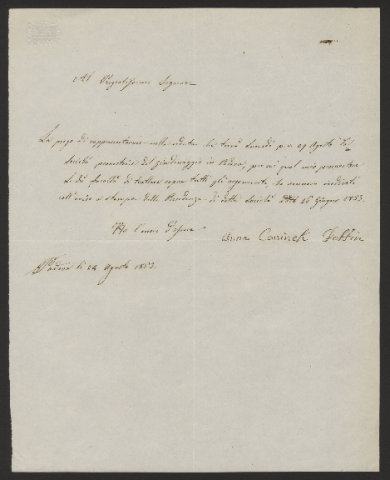 Al Pregiatissimo Signore
La prego di rappresentarmi nella seduta che terrà Lunedì p. v. 29 Agosto la
Società promotrice del giardinaggio in Padova, per cui qual mio procuratore
Le dò facoltà di trattare sopra tutti gli argomenti, che vennero indicati
all'avviso a stampa della Presidenza di detta Società 26 Giugno 1853.
Ho l'onore d'essere
Anna Cominek
Padova li 24 Agosto 1853.